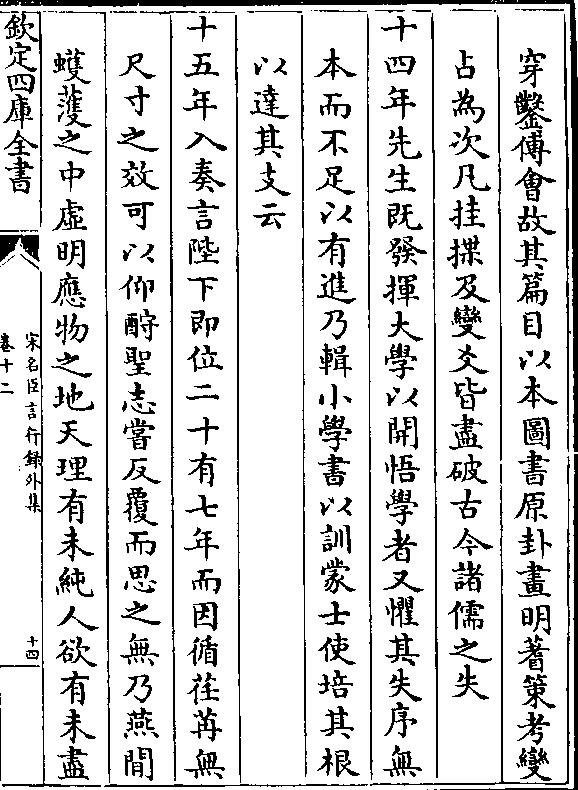 穿鑿傅會故其篇目以本圖書原卦畫明蓍策考變
占為次凡挂揲及變爻皆盡破古今諸儒之失
十四年先生既發揮大學以開悟學者又懼其失序無
本而不足以有進乃輯小學書以訓蒙士使培其根
以達其支云
十五年入奏言陛下即位二十有七年而因循荏苒無
尺寸之效可以仰酧聖志嘗反覆而思之無乃燕間
蠖濩之中虛明應物之地天理有未純人欲有未盡
欽定四庫全書
宋名臣言行録外集
卷十二
十四